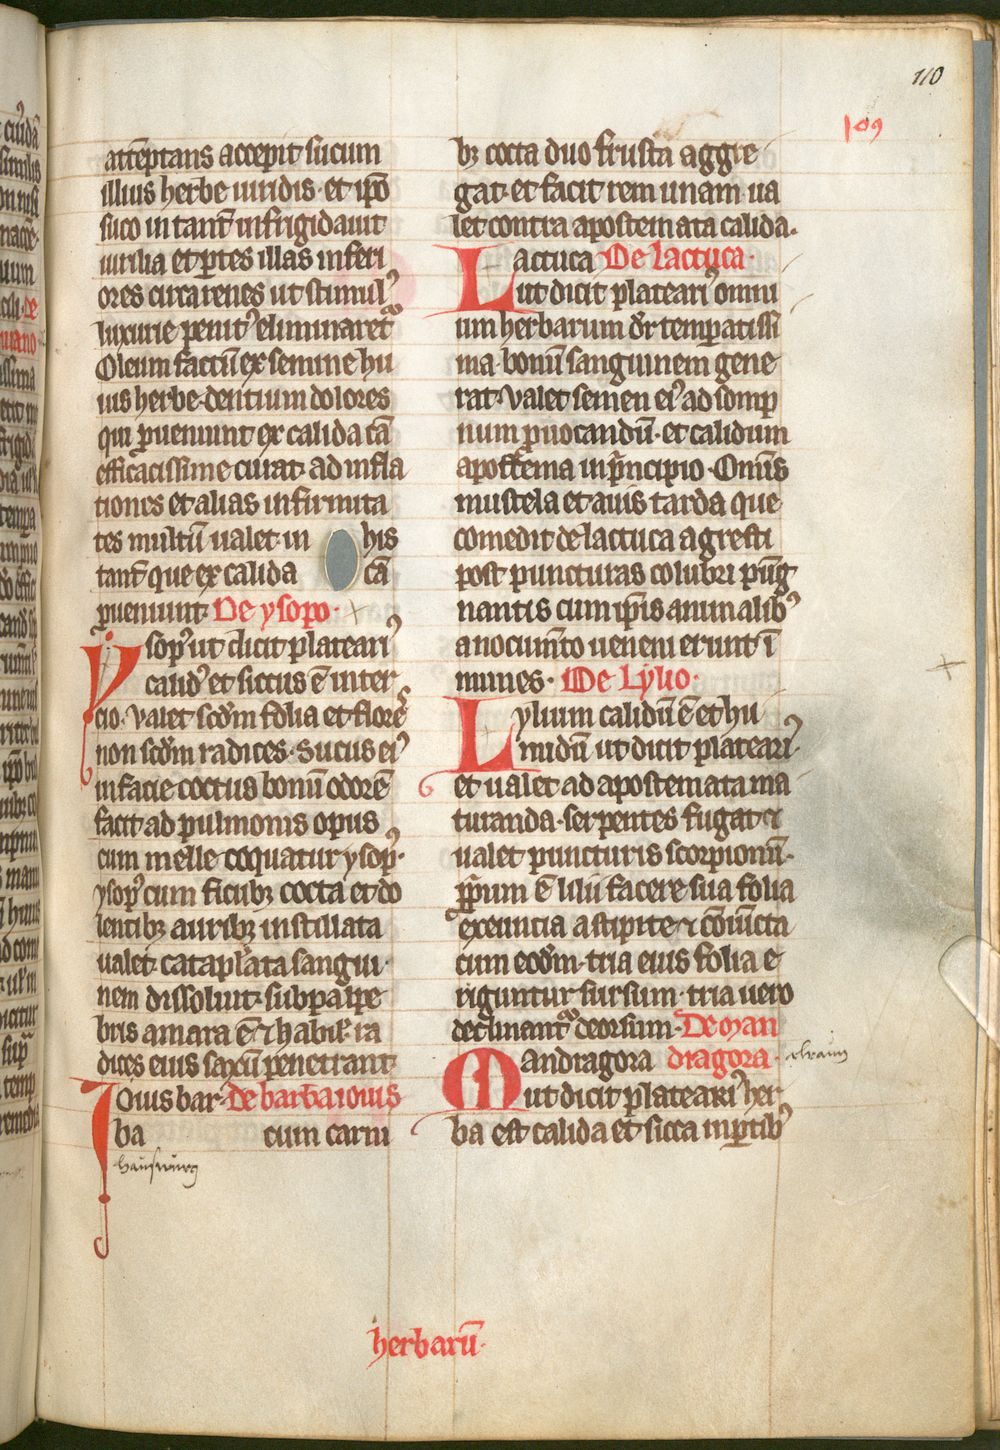 110
109
attēptans accepit sucum
illius herbe uiridis · et ip̄o
suco in tant̄ infrigidauit
uirilia et ꝑtes illas inferi
ores circa renes ut stimulꝰ
luxurie penitꝰ eliminaret᷑
Oleum factū ex semine hu
ius herbe · dentium dolores
qui ꝓueniunt ex calida cā
efficacissime curat · ad infla
tiones et alias infirmita
tes multū ualet · in his
tant̄ que ex calida cā
ꝓueniunt · De ysopo ·
Ysopꝰ ut dicit plateariꝰ
calidꝰ et siccus ē in ter
cio · valet scd̄m folia et florēs
non scd̄m radices · Sucus eiꝰ
in facie coctus bonū odorē
facit ad pulmonis opus
cum melle coquatur ysopꝰ ·
ysopꝰ cum ficubꝫ cocta et do
lentibꝫ auribꝫ instillata
ualet · cataplata sangui
nem dissoluit · sub palpe
bris amara ē ⁊ habil᷑ · ra
dices eius saxū penetrant
Iouis bar · de barba iouis
ba cum carni
hauswurg
bꝫ cocta duo frusta aggre
gat · et facit rem unam ua
let contra apostemata calida ·
Lactuca De lactuca ·
ut dicit plateariꝰ omni
um herbarum dr̄ temperatissi
ma · bonū sanguinem gene
rat · valet semen eiꝰ ad somp
num ꝓuocandū · et calidum
apostema in pͥncipio · Omīs
mustela et auis tarda que
comedit de lactuca agresti
post puncturas colubri pug
nantis cum ip̄is animalibꝰ
a nocumto ueneni erunt ī
munes · De Lylio ·
Lylium calidū ē et hu
midū ut dicit plateariꝰ
et ualet ad apostemata ma
turanda · serpentes fugat ⁊
ualet puncturis scorpionū ·
ꝓpͥum ē lilii facere sua folia
exeuncia a stipite ⁊ ꝯiūcta
cum eod̄m · tria eius folia e
riguntur sursum · tria uero
declinant᷑ deorsum · De man
Mandragora dragora ·
alraun
ut dicit plateariꝰ her
ba est calida et sicca in ꝑtibꝰ
herbarū ·